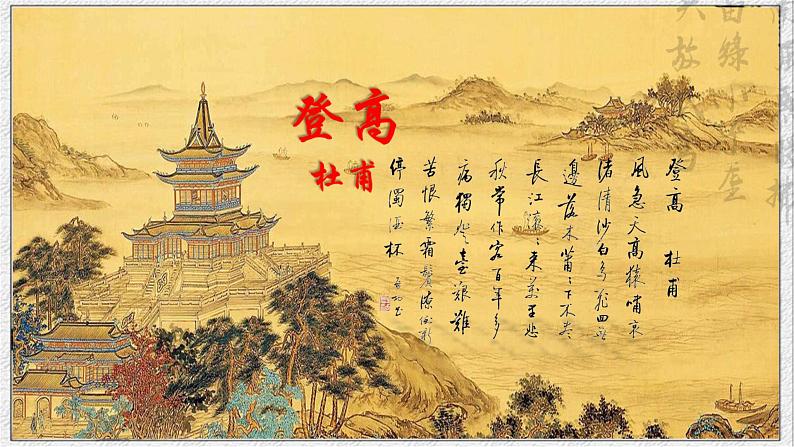 登高
杜甫
登高 杜甫
風急天高猿嘯哀
渚清沙白鳥飛回無
邊落木蕭〻下不盡
長江滚〻来萬里悲
秋常作客百年多
病獨登臺艱難
苦恨繁霜鬢潦倒新
停濁酒杯 启功书